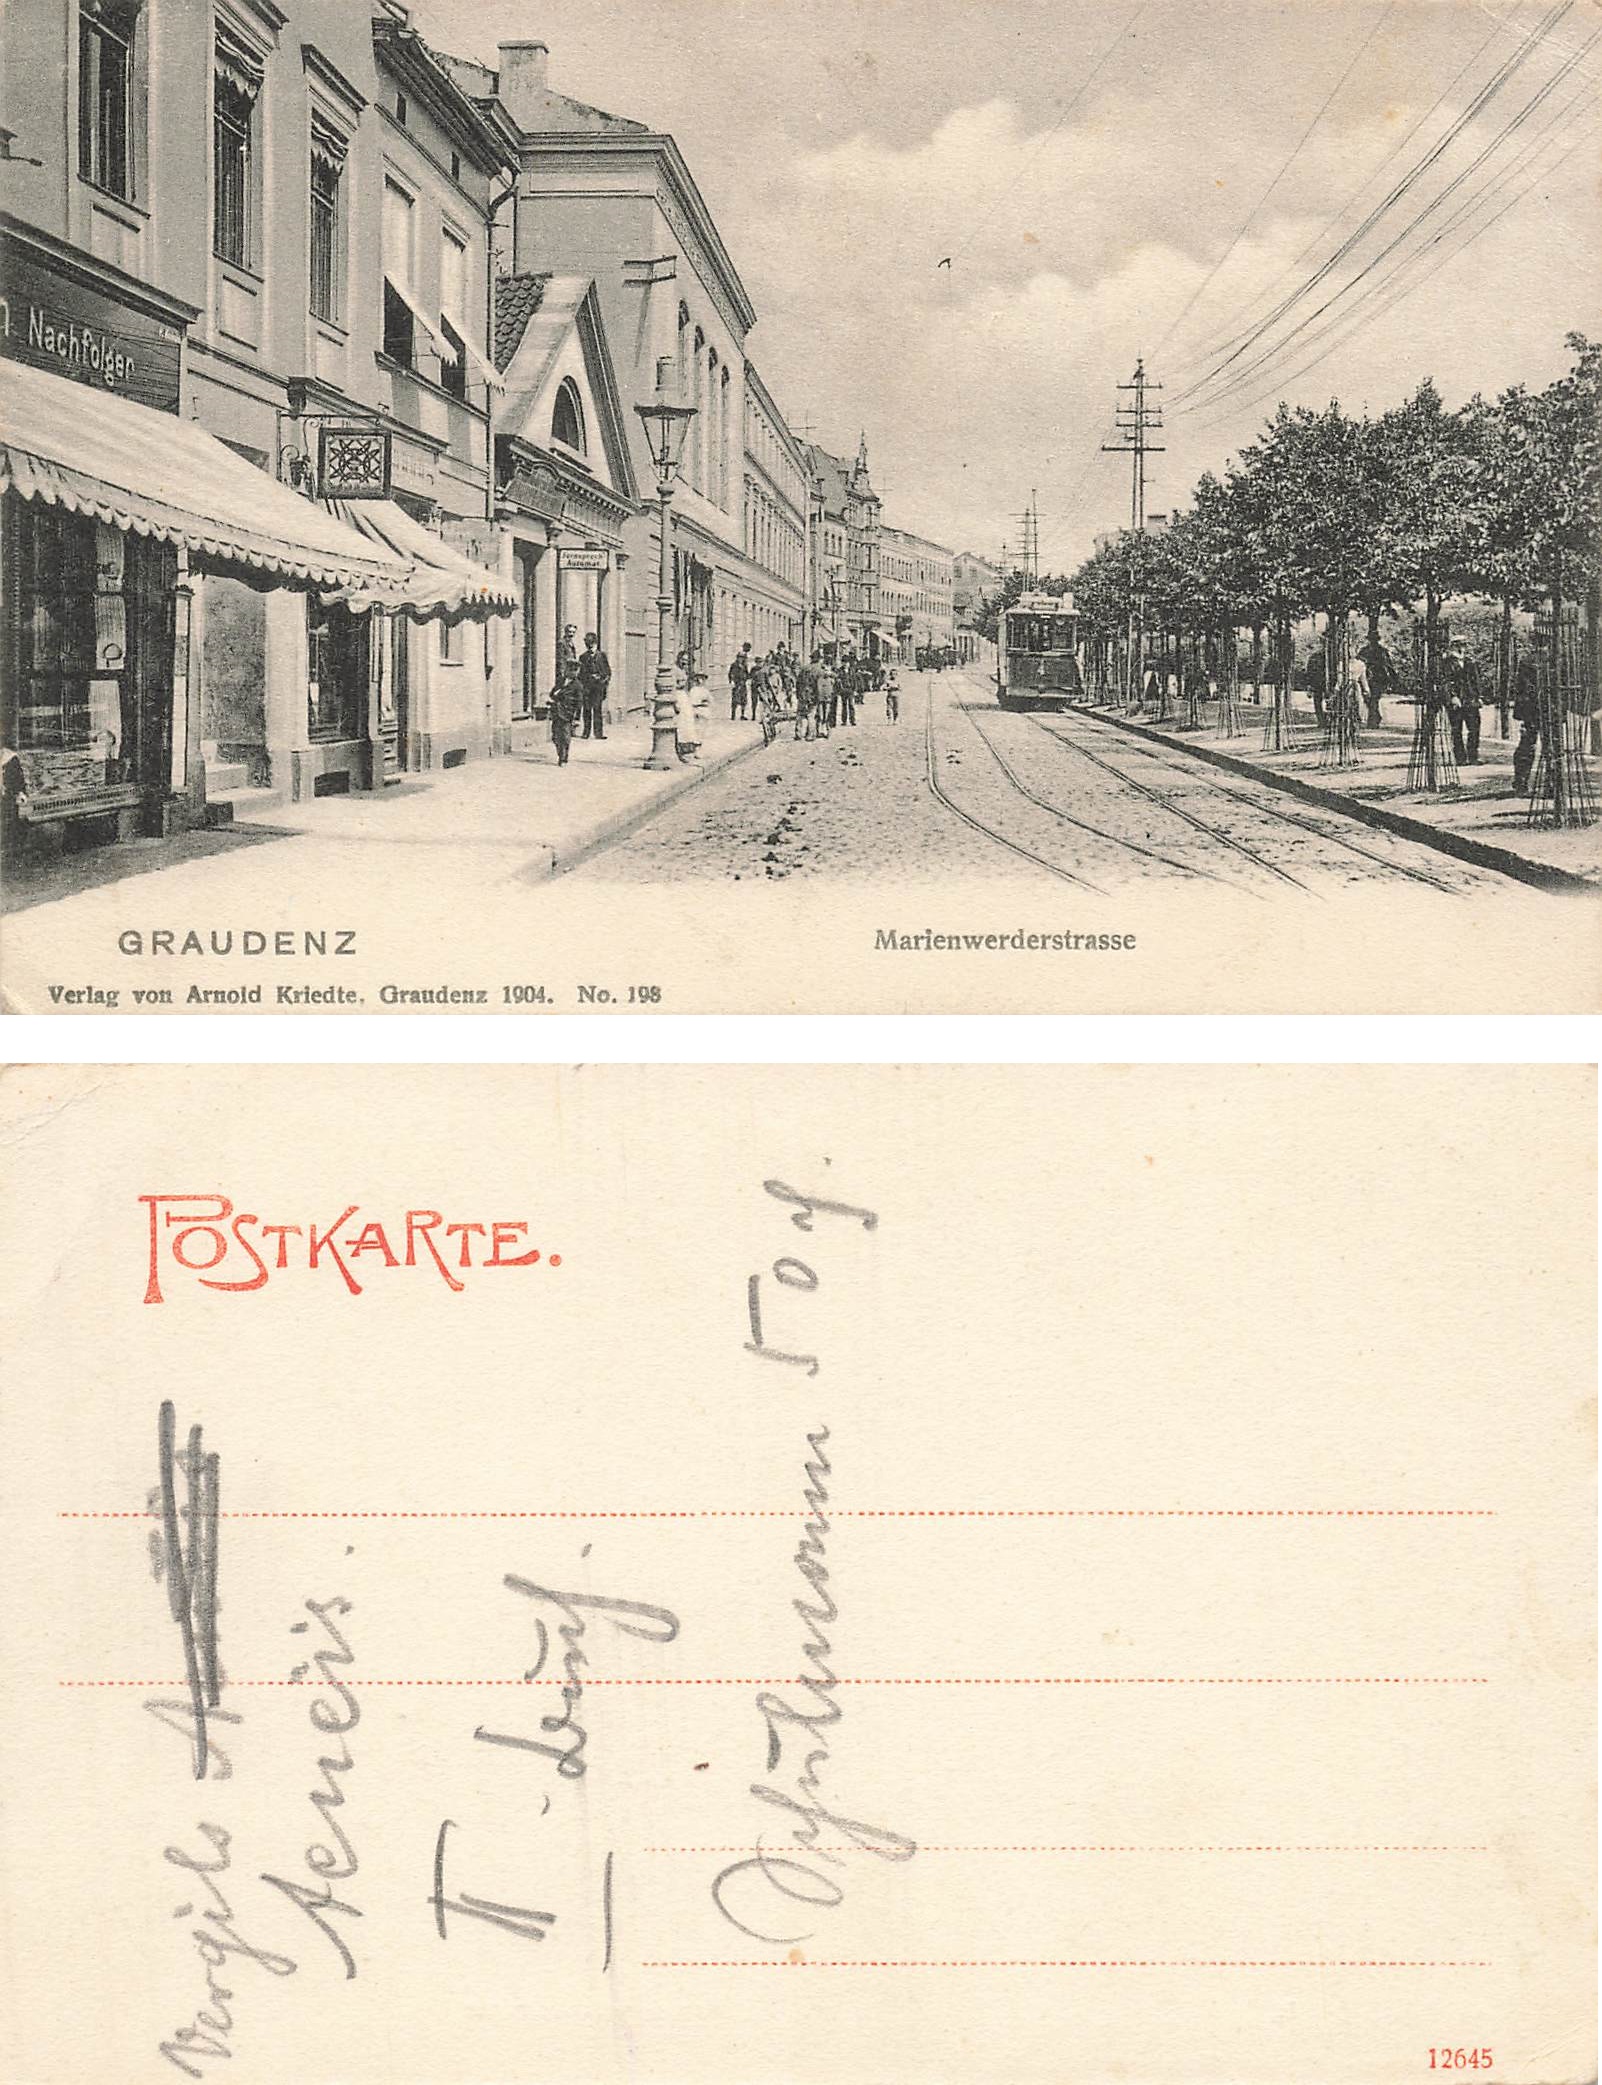 Nachfolger
Fernsprech
Automat.
GRAUDENZ
Marienwerderstrasse
Verlag von Arnold Kriedte, Graudenz 1904. No. 198
POSTKARTE.
Vergils
Aeneïs.
II
50
12645